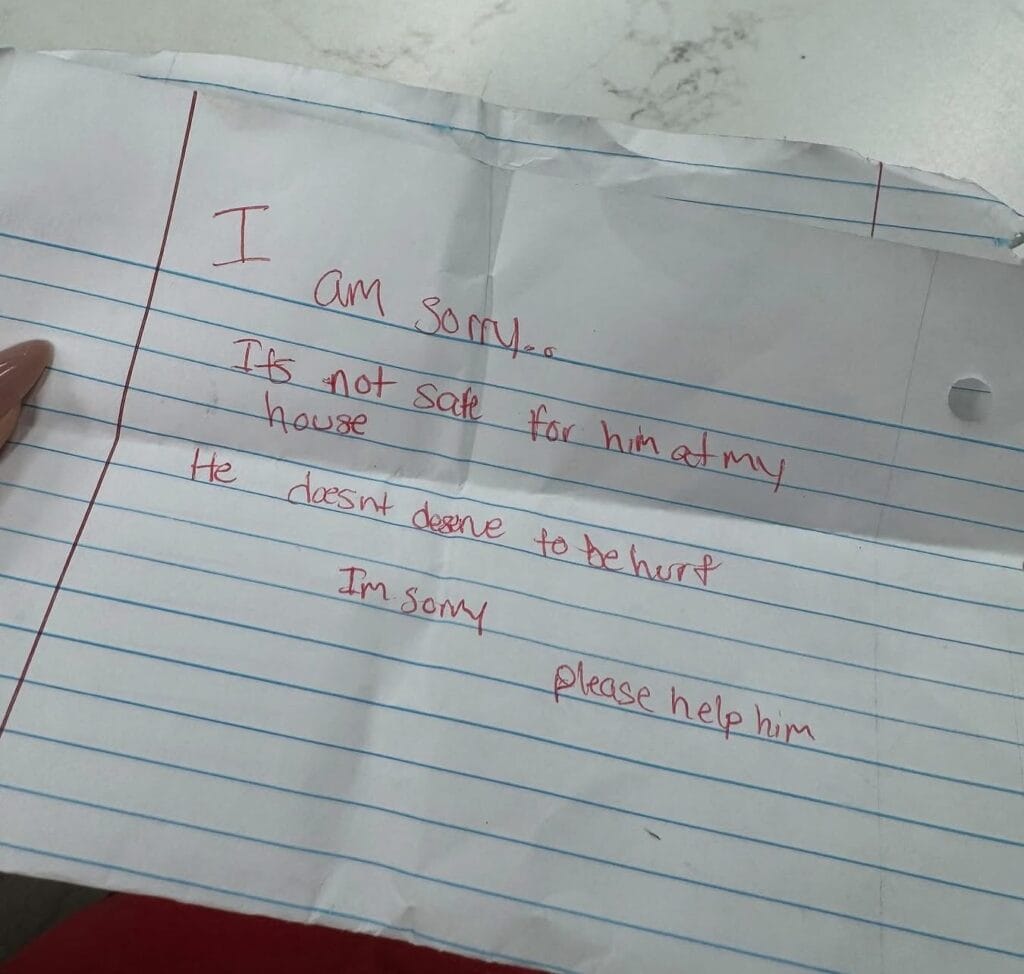 I
am sorry...
Its not safe for him at my
house
He doesnt deserve to be hurt
Im sorry
please help him